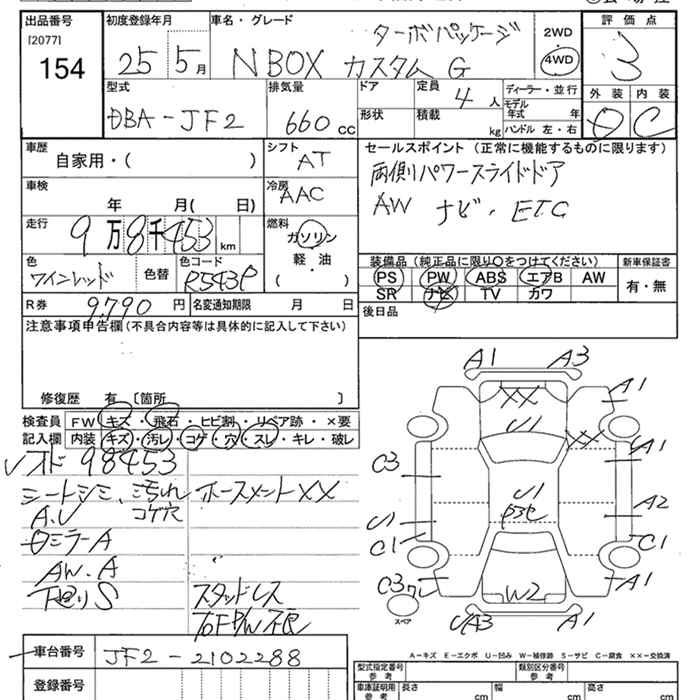 出品番号
[2077]
154
初度登録年月
25 5月
車名・グレード
ターボパッケージ
N BOX カスタム G
2WD
4WD
評価点
3
外装 内装
C
型式
DBA-JF2
排気量
660 cc
ドア
形状
定員
4 人
積載
kg
ディーラー・並行
モデル年式 年
ハンドル 左・右
車歴
自家用・( )
シフト
AT
セールスポイント (正常に機能するものに限ります)
両側パワースライドドア
AW ナビ・ETC
車検
年 月( 日)
冷房
AAC
走行
9万8千453 km
燃料
ガソリン
軽・油
・
( )
色
ワインレッド
色替
色コード
R543P
装備品 (純正品に限り○をつけてください)
PS PW ABS エアB AW
SR ナビ TV カワ
新車保証書
有・無
R券
9,790 円
名変通知期限 月 日
後日品
注意事項申告欄 (不具合内容等は具体的に記入して下さい)
修復歴 有 〔箇所 〕
検査員記入欄
FW キズ・飛石・ヒビ割・リペア跡・×要
内装 キズ・汚レ・コゲ・穴・スレ・キレ・破レ
98453
シートシミ、汚れ ホースメントXX
A.U コゲ穴
ミラーA
AW.A
下廻りS スタッドレス
右F P/W不良
A1 A3
XX
A1
U1
XX
A1
C3
U1
A2
U1
C1
C1
C3
W2
A1
スペア
UA3
A1
A-キズ E-エクボ U-凹み W-補修跡 S-サビ C-腐食 XX-交換済
車台番号
JF2-2102288
登録番号
型式指定番号
参考
類別区分番号
車庫証明用
参考
長さ cm
幅 cm
高さ cm